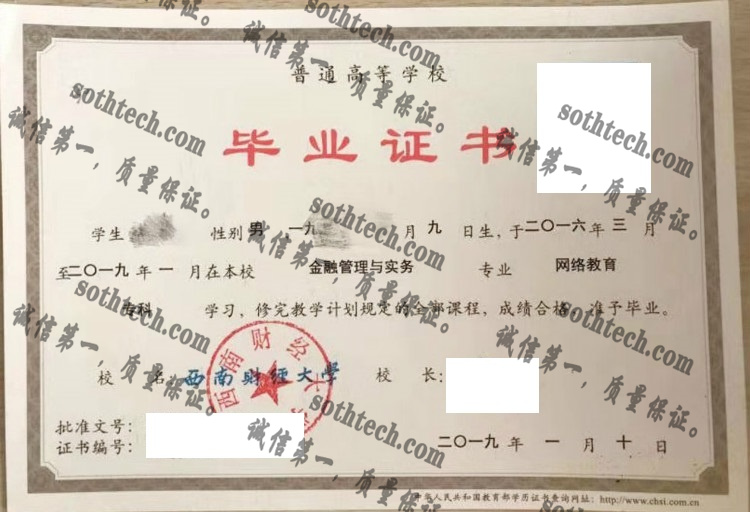 普通高等学校
毕业证书
学生 性别 男 一九 月 九 日生，于二〇一六年 三 月
至二〇一九年 一 月在本校 金融管理与实务 专业 网络教育
专科 学习，修完教学计划规定的全部课程，成绩合格，准予毕业。
校 名：西南财经大学 校 长：
西南财经大
批准文号：
证书编号：
二〇一九 年 一 月 十 日
中华人民共和国教育部学历证书查询网址：http://www.chsi.com.cn
sothtech.com
诚信第一，质量保证。
sothtech.com
诚信第一，质量保证。
sothtech.com
诚信第一，质量保证。
sothtech.com
诚信第一，质量保证。
sothtech.com
诚信第一，质量保证。
sothtech.com
诚信第一，质量保证。
sothtech.com
诚信第一，质量保证。